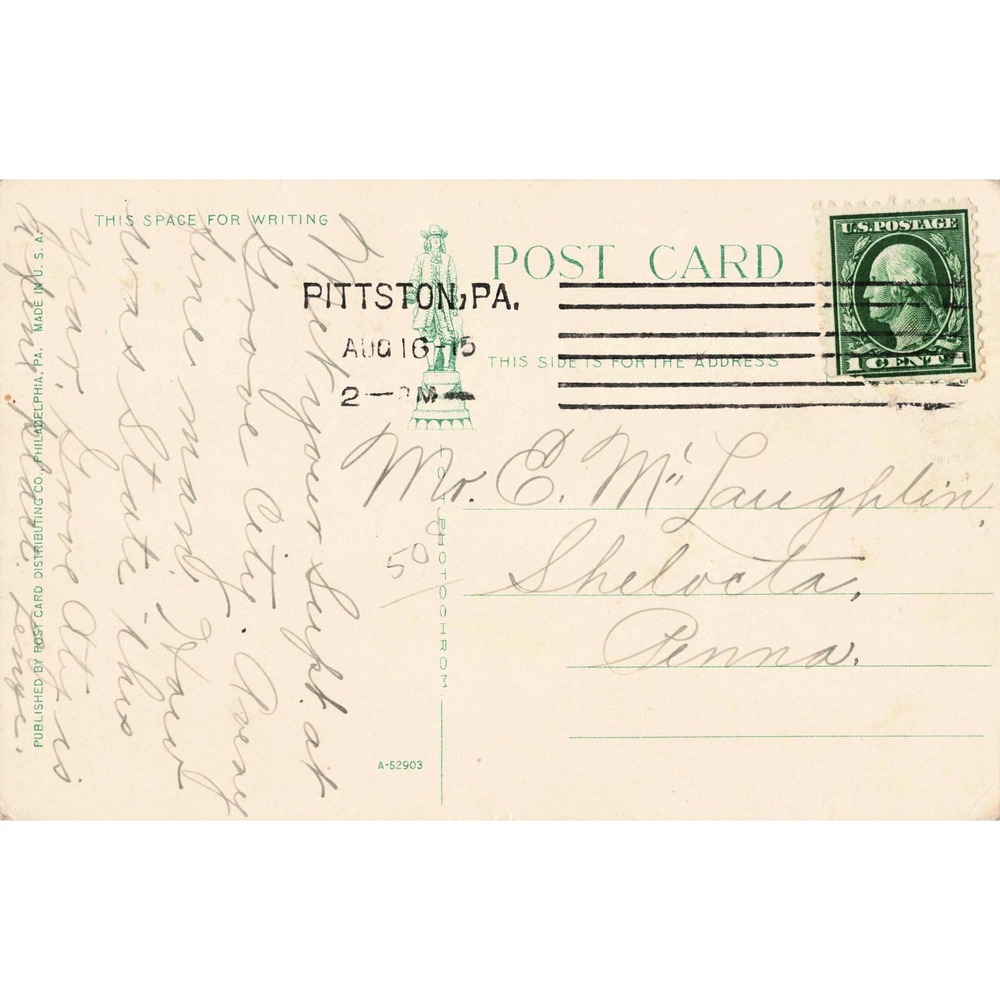 THIS SPACE FOR WRITING
POST CARD
THIS SIDE IS FOR THE ADDRESS
U.S. POSTAGE
1 CENT 1
PITTSTON, PA.
AUG 16-15
2—PM
Met your Supt at
Grove City. A very
fine man. How
was State this
year. Grove City is
a fine place.
Mr. E. McLaughlin,
Shelocta,
Penna.
50
PHOTOCHROM
A-52903
PUBLISHED BY POST CARD DISTRIBUTING CO., PHILADELPHIA, PA. MADE IN U.S.A.